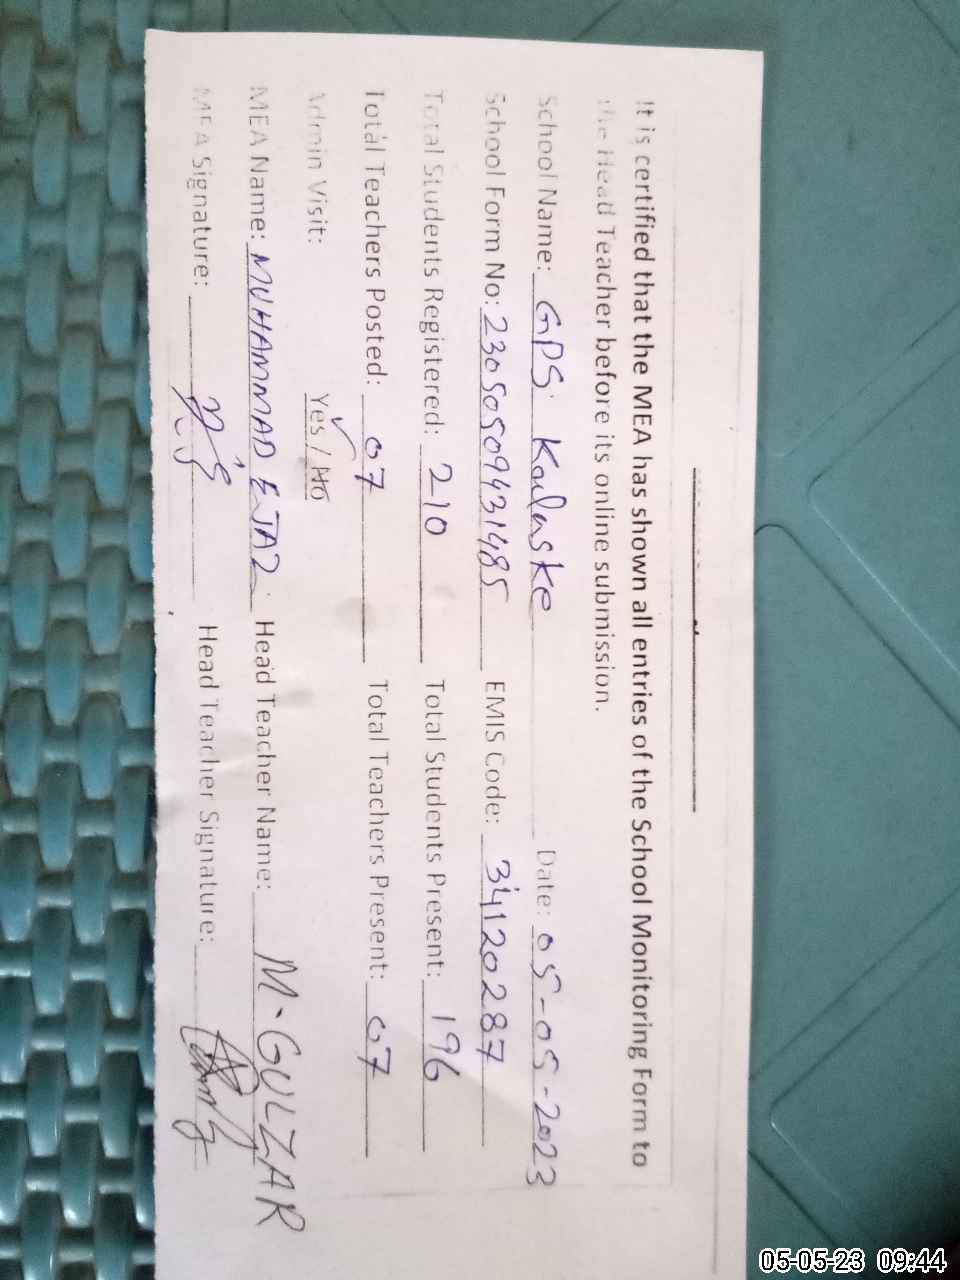 It is certified that the MEA has shown all entries of the School Monitoring Form to
the Head Teacher before its online submission.
School Name: GPS Kailaske Date: 05-05-2023
School Form No: 23050509431485 EMIS Code: 34120287
Total Students Registered: 210 Total Students Present: 196
Total Teachers Posted: 07 Total Teachers Present: 07
Admin Visit: Yes / No
MEA Name: MUHAMMAD EJAZ Head Teacher Name: M. GULZAR
MEA Signature: Head Teacher Signature:
05-05-23 09:44